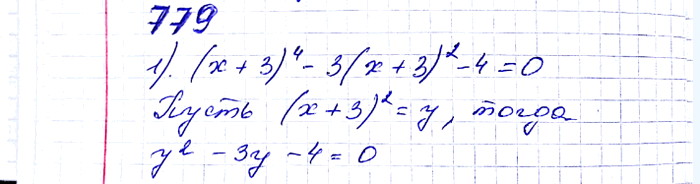 779
1). (x+3)⁴ - 3(x+3)² - 4 = 0
Пусть (x+3)² = y, тогда
y² - 3y - 4 = 0